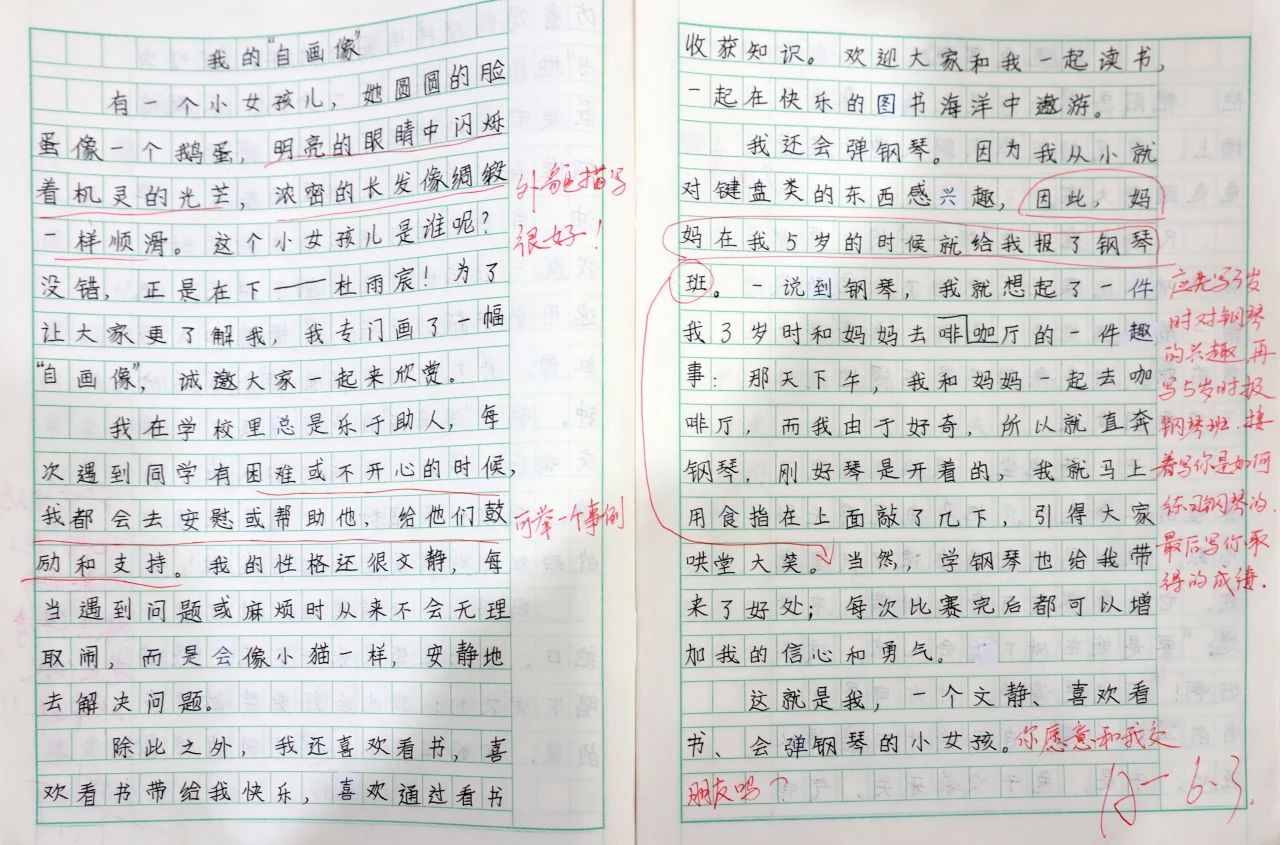 我的“自画像”
有一个小女孩儿，她圆圆的脸
蛋像一个鹅蛋，明亮的眼睛中闪烁
着机灵的光芒，浓密的长发像绸缎
一样顺滑。这个小女孩儿是谁呢？
没错，正是在下——杜雨宸！为了
让大家更了解我，我专门画了一幅
“自画像”，诚邀大家一起来欣赏。
我在学校里总是乐于助人，每
次遇到同学有困难或不开心的时候，
我都会去安慰或帮助他，给他们鼓
励和支持。我的性格还很文静，每
当遇到问题或麻烦时从来不会无理
取闹，而是会像小猫一样，安静地
去解决问题。
除此之外，我还喜欢看书，喜
欢看书带给我快乐，喜欢通过看书
外貌描写
很好！
可举一个事例
收获知识。欢迎大家和我一起读书，
一起在快乐的图书海洋中遨游。
我还会弹钢琴。因为我从小就
对键盘类的东西感兴趣，因此，妈
妈在我5岁的时候就给我报了钢琴
班。一说到钢琴，我就想起了一件
我3岁时和妈妈去啡咖厅的一件趣
事：那天下午，我和妈妈一起去咖
啡厅，而我由于好奇，所以就直奔
钢琴，刚好琴是开着的，我就马上
用食指在上面敲了几下，引得大家
哄堂大笑。当然，学钢琴也给我带
来了好处；每次比赛完后都可以增
加我的信心和勇气。
这就是我，一个文静、喜欢看
书、会弹钢琴的小女孩。你愿意和我交
朋友吗？
应先写3岁
时对钢琴
的兴趣，再
写5岁时报
钢琴班，接
着写你是如何
练习钢琴的，
最后写你取
得的成绩.
6.3.